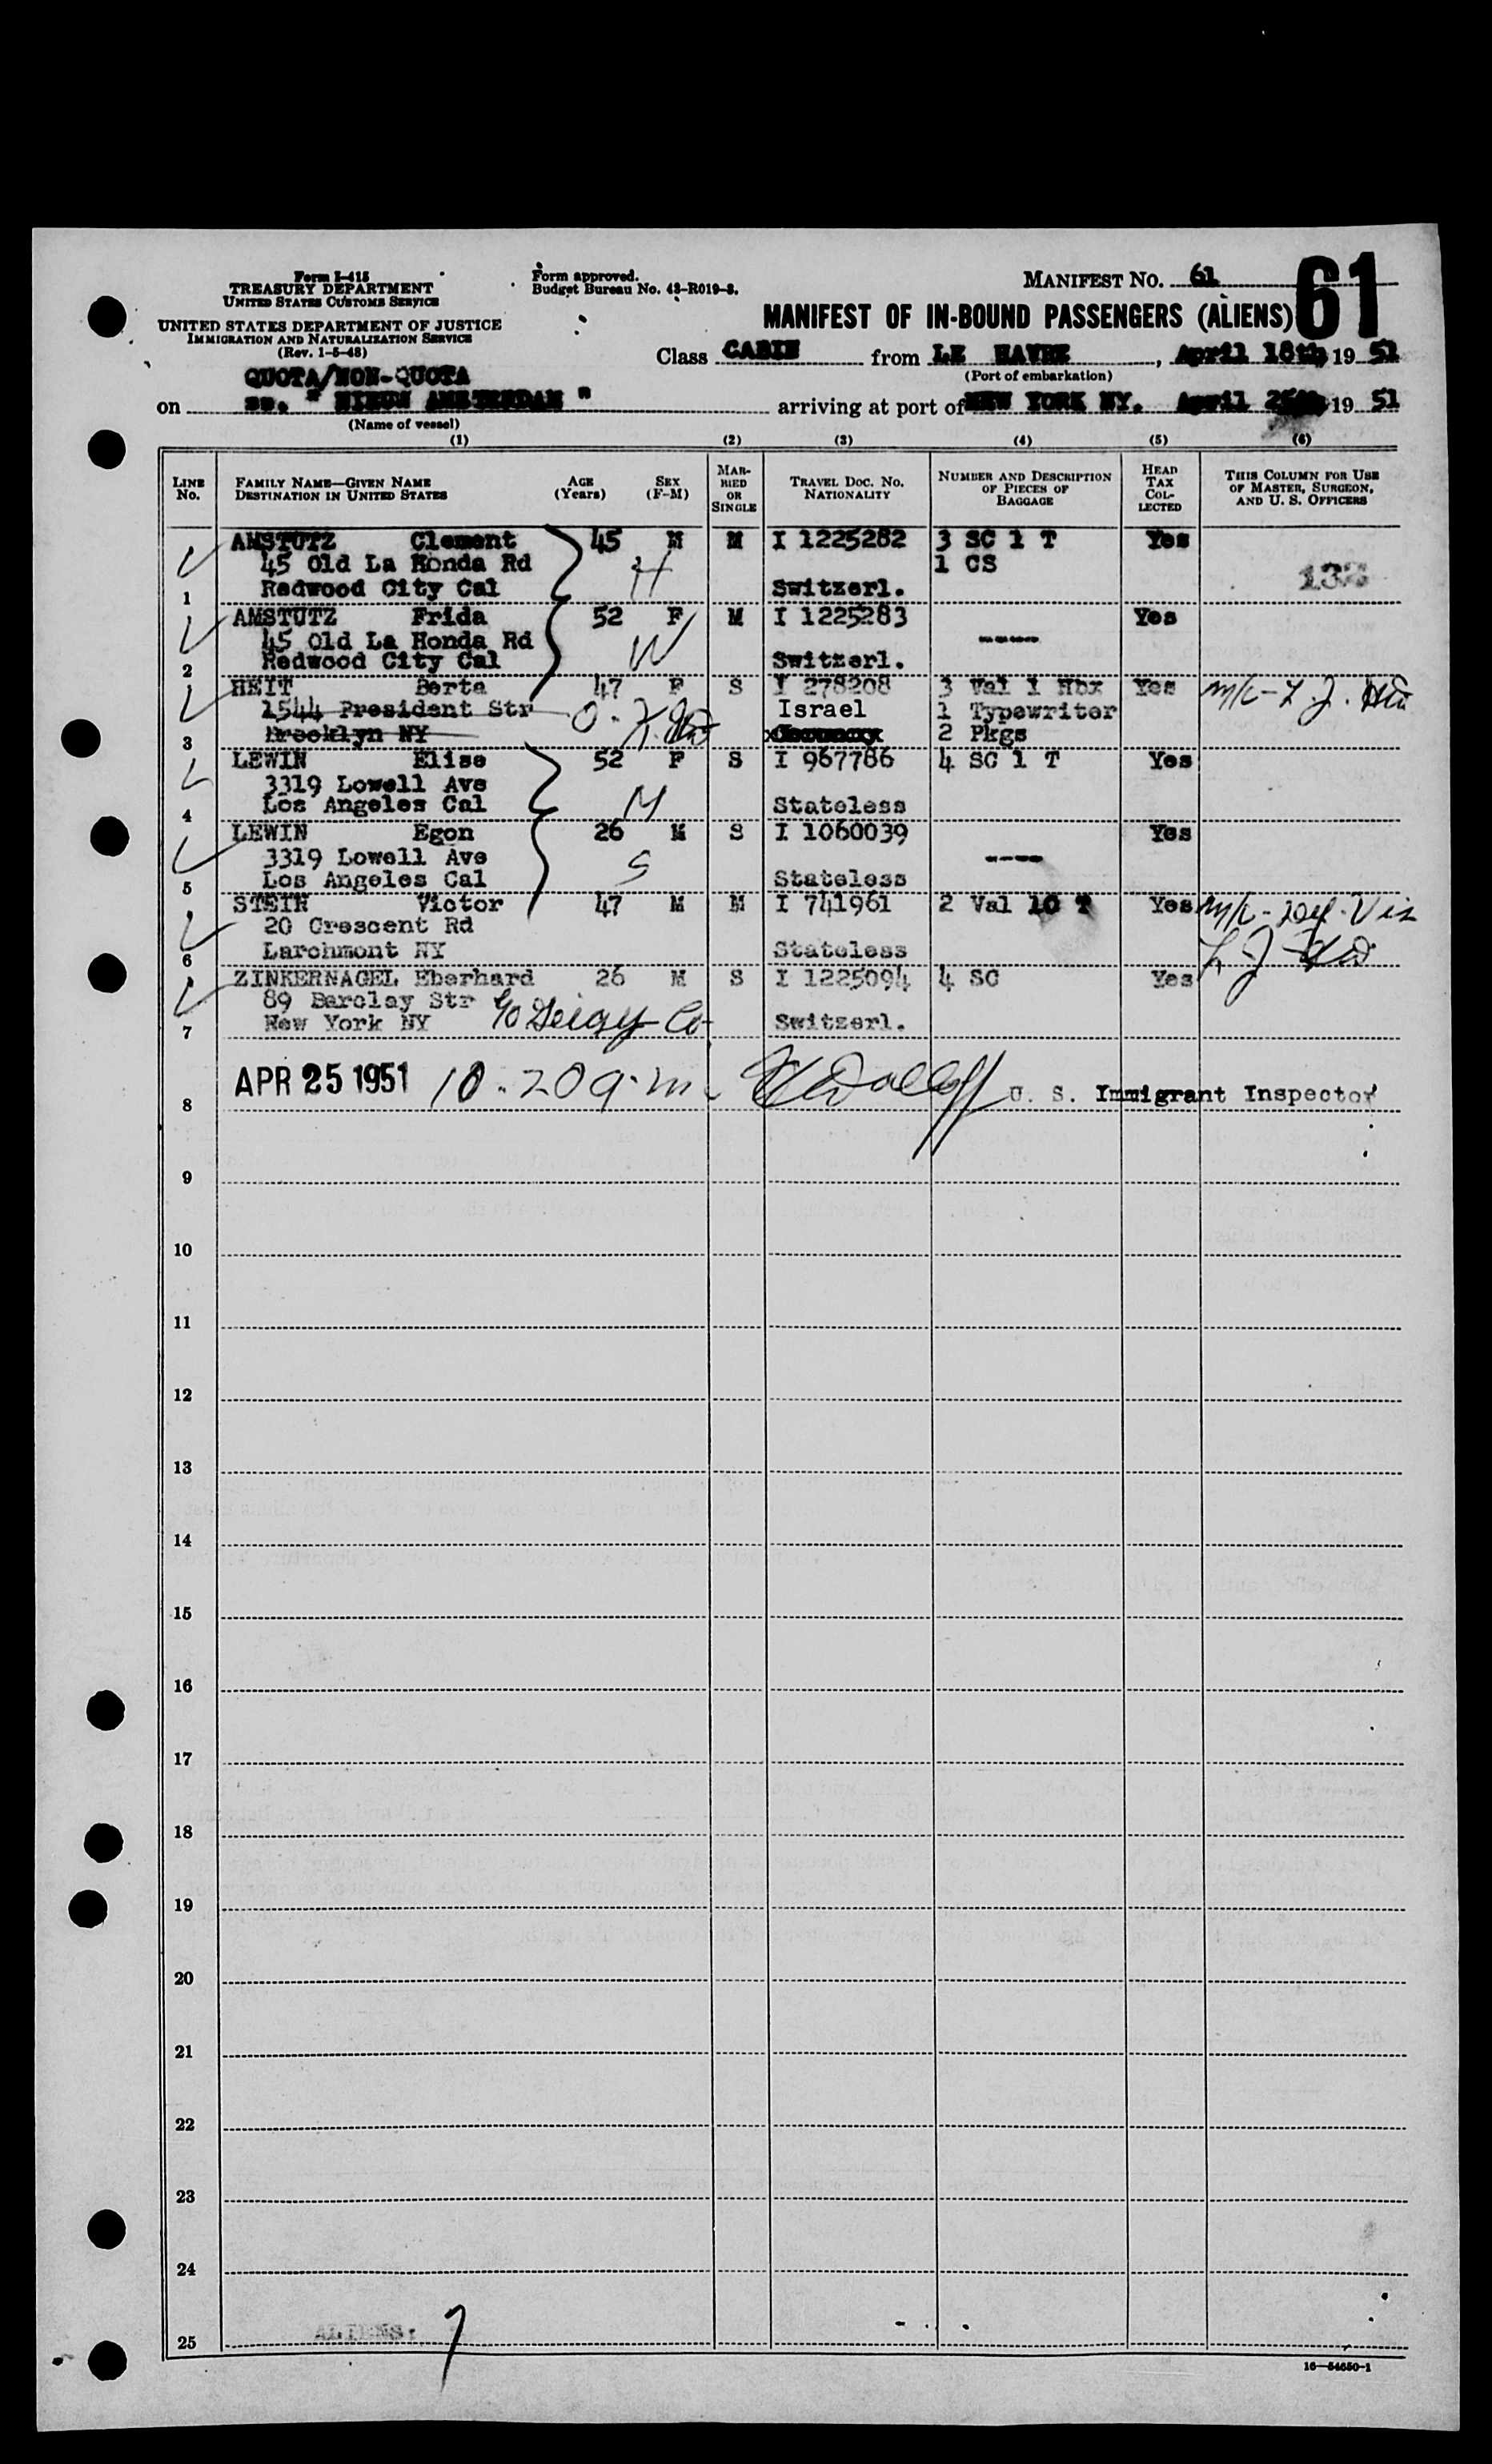 Form I-415
TREASURY DEPARTMENT
UNITED STATES CUSTOMS SERVICE
UNITED STATES DEPARTMENT OF JUSTICE
IMMIGRATION AND NATURALIZATION SERVICE
(Rev. 1-5-48)
Form approved.
Budget Bureau No. 43-R019-3.
MANIFEST NO. 61
61
MANIFEST OF IN-BOUND PASSENGERS (ALIENS)
Class CABIN from LE HAVRE, April 18th, 19 51
(Port of embarkation)
QUOTA/NON-QUOTA
on ss. " NIEUW AMSTERDAM " arriving at port of NEW YORK NY. April 19 51
(Name of vessel)
(1) (2) (3) (4) (5) (6)
LINE NO. FAMILY NAME—GIVEN NAME DESTINATION IN UNITED STATES AGE (Years) SEX (F-M) MARRIED OR SINGLE TRAVEL DOC. NO. NATIONALITY NUMBER AND DESCRIPTION OF PIECES OF BAGGAGE HEAD TAX COLLECTED THIS COLUMN FOR USE OF MASTER, SURGEON, AND U. S. OFFICERS
AMSTUTZ Clement 45 M M I 1225282 3 SC 1 T Yes
45 Old La Honda Rd H 1 CS
1 Redwood City Cal Switzerl.
AMSTUTZ Frida 52 F M I 1225283 Yes
45 Old La Honda Rd W ----
2 Redwood City Cal Switzerl.
HEIT Berta 47 F S I 278208 3 Val 1 Hbx Yes
1544 President Str O.K. Israel 1 Typewriter
3 Brooklyn NY 2 Pkgs
LEWIN Elise 52 F S I 967786 4 SC 1 T Yes
3319 Lowell Ave M
4 Los Angeles Cal Stateless
LEWIN Egon 26 M S I 1060039 Yes
3319 Lowell Ave S ----
5 Los Angeles Cal Stateless
STEIN Victor 47 M M I 741961 2 Val 10 T Yes
20 Crescent Rd
6 Larchmont NY Stateless
ZINKERNAGEL Eberhard 26 M S I 1225094 4 SC Yes
89 Barclay Str
7 New York NY c/o Geigy Co. Switzerl.
8 APR 25 1951 10-20 a.m. U. S. Immigrant Inspector
9
10
11
12
13
14
15
16
17
18
19
20
21
22
23
24
25 ALIENS: 7
16—54650-1